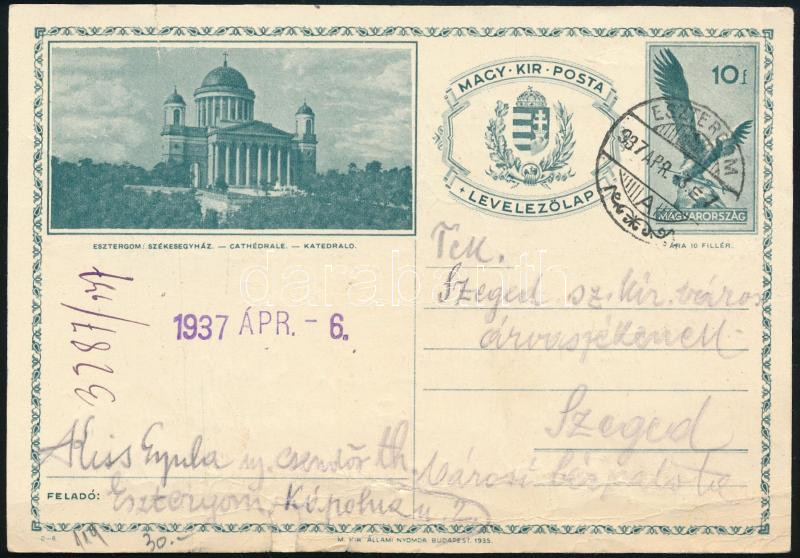 MAGY · KIR · POSTA
LEVELEZŐLAP
10 f
MAGYARORSZÁG
ÁRA 10 FILLÉR.
ESZTERGOM
937 ÁPR.
A
ESZTERGOM: SZÉKESEGYHÁZ. — CATHÉDRALE. — KATEDRALO.
1937 ÁPR. - 6.
Tek.
Szeged sz. kir. város
árvaszékének
Szeged
Városi bérpalota
Kiss Gyula ny. csendőr th.
FELADÓ:
Esztergom, Kápolna u. 2
2—6.
M. KIR. ÁLLAMI NYOMDA, BUDAPEST, 1935.
119
30.-
darabanth